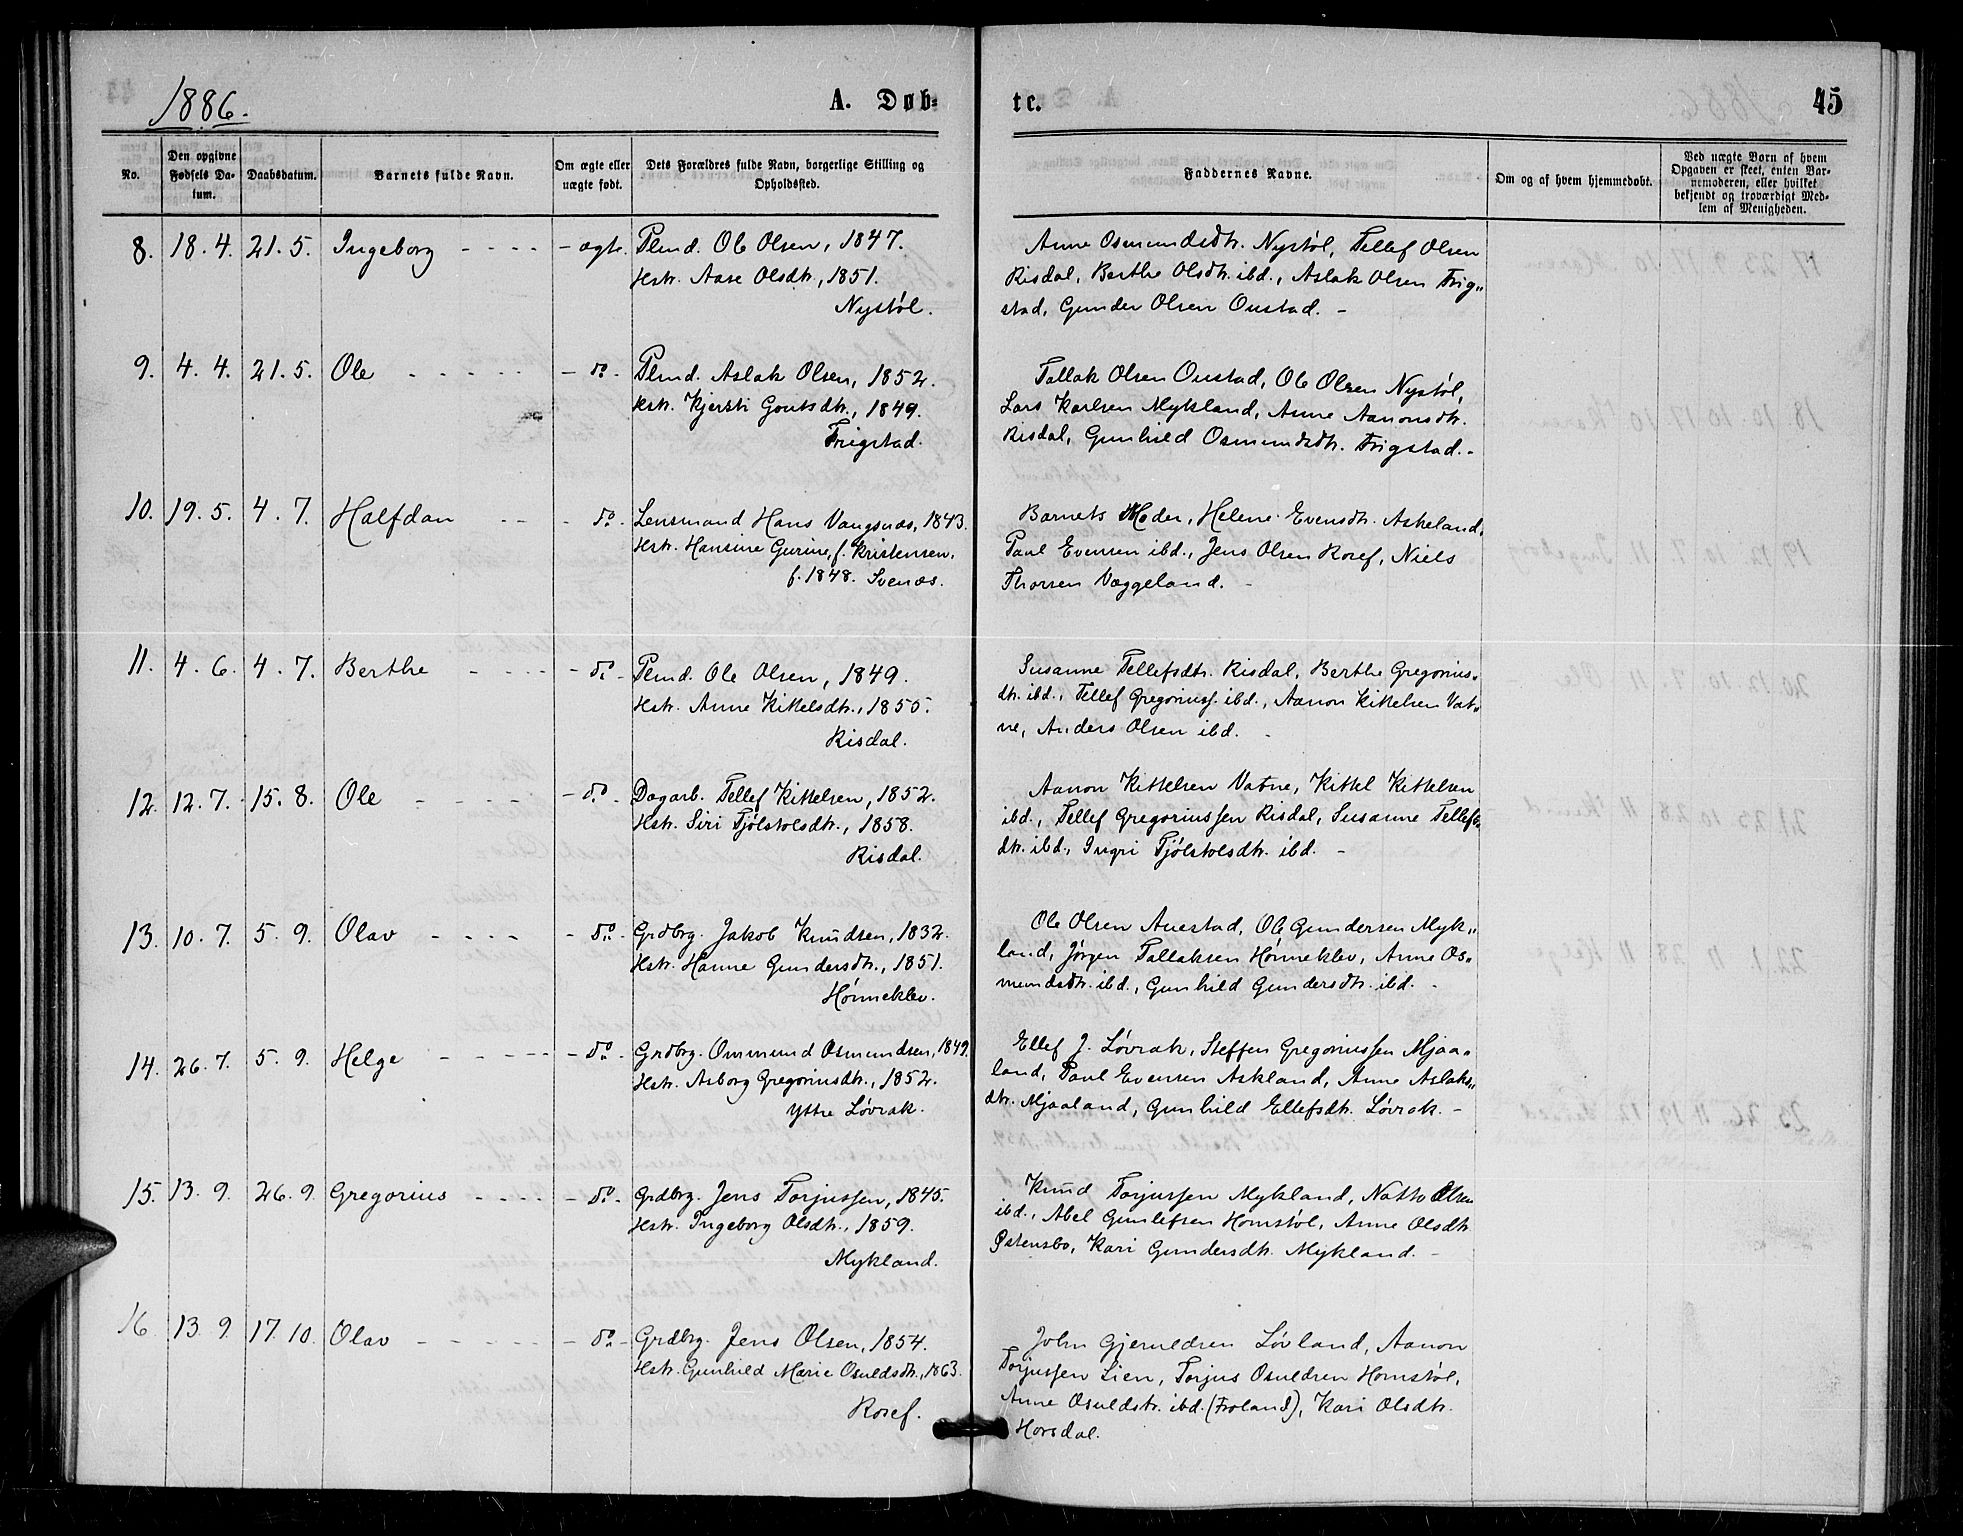 1886.
A. Døb=
te.
45
No.
Den opgivne Fødsels Datum.
Daabsdatum.
Barnets fulde Navn.
Om ægte eller uægte født.
Dets Forældres fulde Navn, borgerlige Stilling og Opholdssted.
Faddernes Navne.
Om og af hvem hjemmedøbt.
Ved uægte Barn af hvem Opgaven er skeet, enten Barnemoderen, eller hvilket bekjendt og troværdigt Medlem af Menigheden.
8. 18. 4. 21. 5. Ingeborg - - - - - ægte. Plmd. Ole Olsen, 1847.
Hstr. Aase Olsdtr., 1851.
Nystøl.
Anne Osmundsdtr. Nystøl, Tellef Olsen
Risdal, Berthe Olsdtr. ibd., Aslak Olsen Frig„
stad, Gunder Olsen Oustad. -
9. 4. 4. 21. 5. Ole - - - - - do. Plmd. Aslak Olsen, 1852.
Hstr. Kjersti Goutsdtr., 1849.
Frigstad.
Tallak Olsen Oustad, Ole Olsen Nystøl,
Lars Karlsen Mykland, Anne Aanonsdtr.
Risdal, Gunhild Osmundsdtr. Frigstad. -
10. 19. 5. 4. 7. Halfdan - - - do. Lensmand Hans Vangsnæs, 1843.
Hstr. Hansine Gurine, f. Kristensen,
f. 1848. Svenæs.
Barnets Moder, Helene Evensdtr. Askeland,
Paul Evensen ibd., Jens Olsen Rosef, Niels
Thorsen Væggeland. -
11. 4. 6. 4. 7. Berthe - - - - do. Plmd. Ole Olsen, 1849.
Hstr. Anne Kittelsdtr., 1855.
Risdal.
Susanne Tellefsdtr. Risdal, Berthe Gregorius„
dtr. ibd., Tellef Gregoriuss. ibd., Aanon Kittelsen Vat„
ne, Anders Olsen ibd. -
12. 12. 7. 15. 8. Ole - - - - - do. Dagarb. Tellef Kittelsen, 1852.
Hstr. Siri Tjølstolsdtr., 1858.
Risdal.
Aanon Kittelsen Vatne, Kittel Kittelsen
ibd., Tellef Gregoriussen Risdal, Susanne Tellefs„
dtr. ibd., Ingri Tjølstolsdtr. ibd. -
13. 10. 7. 5. 9. Olav - - - - - do. Grdbrg. Jakob Knudsen, 1832.
Hstr. Hanne Gundersdtr., 1851.
Hønneklev.
Ole Olsen Auestad, Ole Gundersen Myk„
land, Jørgen Tallaksen Hønneklev, Anne Os„
mundsdtr. ibd., Gunhild Gundersdtr. ibd. -
14. 26. 7. 5. 9. Helge - - - - - do. Grdbrg. Ommund Osmundsen, 1849.
Hstr. Asborg Gregoriusdtr., 1852.
Yttre Løvrak.
Ellef J. Løvrak, Steffen Gregoriussen Mjaa„
land, Paul Evensen Askland, Anne Aslaks„
dtr. Mjaaland, Gunhild Ellefsdtr. Løvrak. -
15. 13. 9. 26. 9. Gregorius - - - - do. Grdbrg. Jens Torjussen, 1845.
Hstr. Ingeborg Olsdtr., 1859.
Mykland.
Knud Torjussen Mykland, Natto Olsen
ibd., Abel Gunlefsen Homstøl, Anne Olsdtr.
Østensbo, Kari Gundersdtr. Mykland. -
16. 13 9. 17. 10. Olav - - - - - do. Grdbrg. Jens Olsen, 1854.
Hstr. Gunhild Marie Osuldsdtr., 1863.
Rosef.
John Gjeruldsen Løvland, Aanon
Torjussen Lien, Torjus Osuldsen Homstøl,
Anne Osuldstr. ibd. (Froland), Kari Olsdtr.
Horsdal.